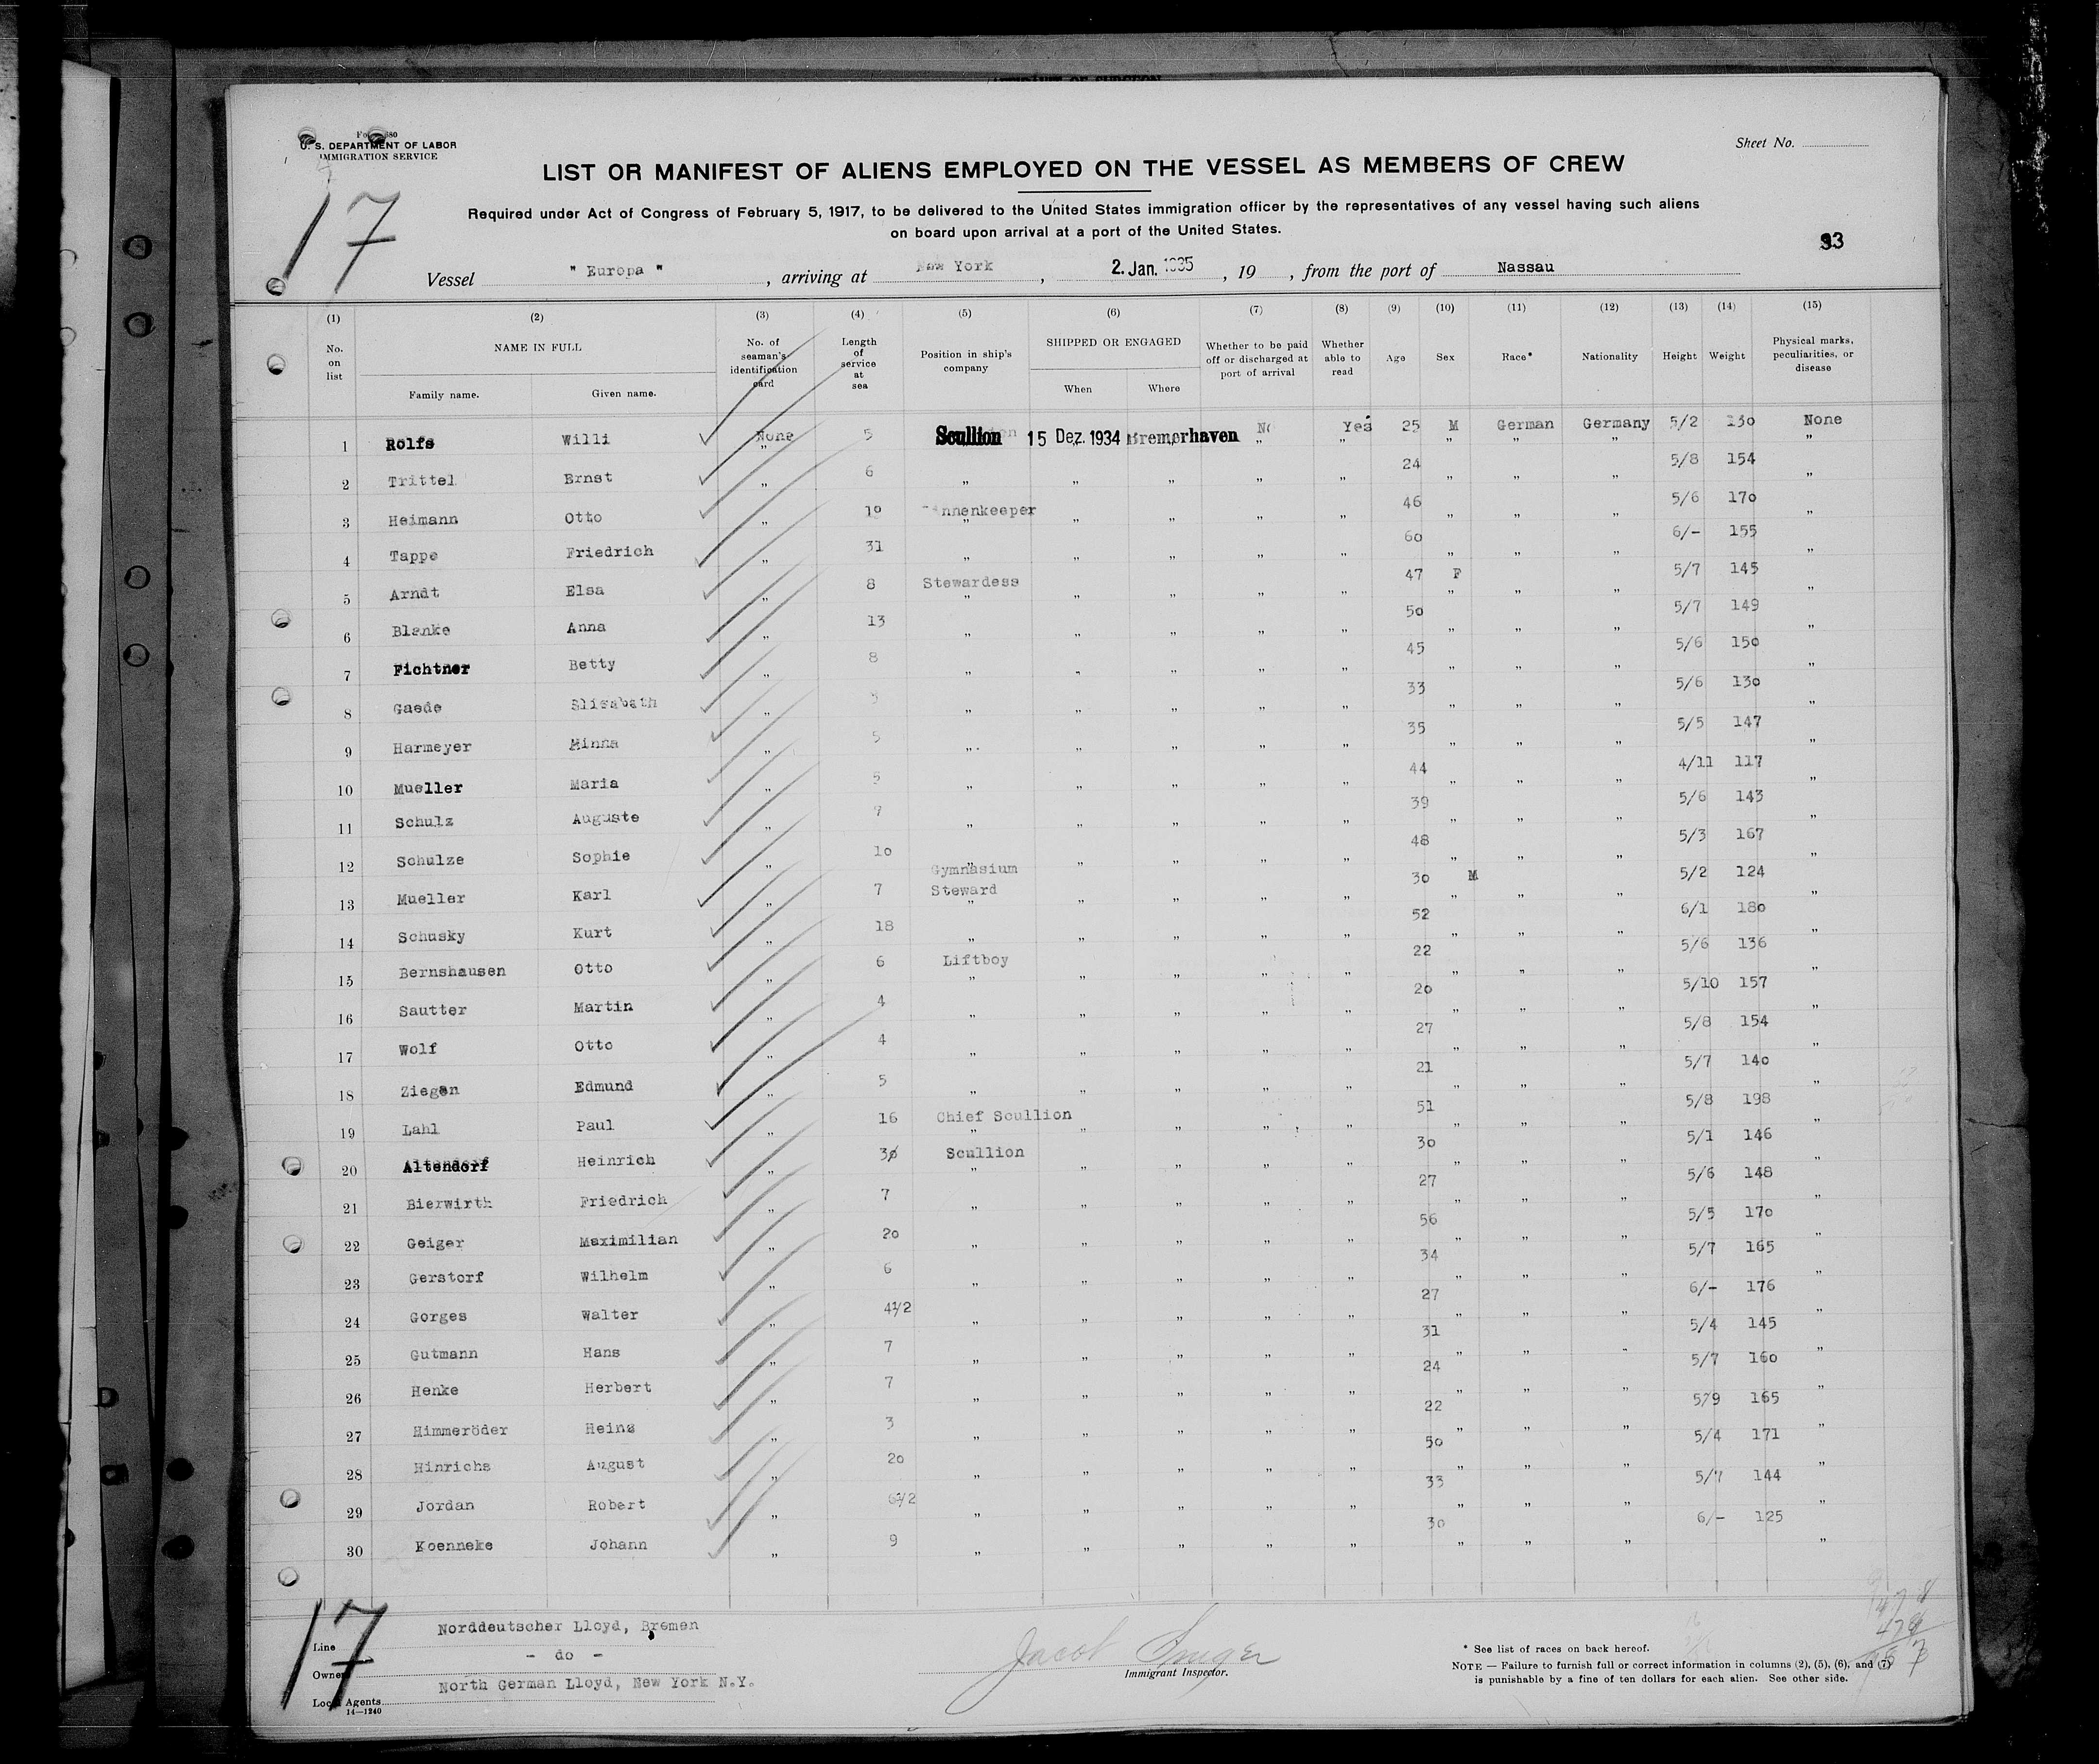 U. S. DEPARTMENT OF LABOR
IMMIGRATION SERVICE
Sheet No.
LIST OR MANIFEST OF ALIENS EMPLOYED ON THE VESSEL AS MEMBERS OF CREW
Required under Act of Congress of February 5, 1917, to be delivered to the United States immigration officer by the representatives of any vessel having such aliens
on board upon arrival at a port of the United States.
17
93
Vessel " Europa " , arriving at New York , 2. Jan. 1935 , 19 , from the port of Nassau
(1) (2) (3) (4) (5) (6) (7) (8) (9) (10) (11) (12) (13) (14) (15)
No. on list NAME IN FULL Family name. Given name. No. of seaman's identification card Length of service at sea Position in ship's company SHIPPED OR ENGAGED When Where Whether to be paid off or discharged at port of arrival Whether able to read Age Sex Race* Nationality Height Weight Physical marks, peculiarities, or disease
1 Rolfs Willi None „ 5 Scullion 15 Dez. 1934 „ Bremerhaven „ No „ Yes „ 25 M „ German „ Germany „ 5/2 130 None „
2 Trittel Ernst „ 6 „ „ „ „ „ 24 „ „ „ 5/8 154 „
3 Heimann Otto „ 10 „ „ „ „ „ 46 „ „ „ 5/6 170 „
4 Tappe Friedrich „ 31 „ „ „ „ „ 60 „ „ „ 6/- 155 „
5 Arndt Elsa „ 8 Stewardess „ „ „ „ „ 47 F „ „ „ 5/7 145 „
6 Blanke Anna „ 13 „ „ „ „ „ 50 „ „ „ 5/7 149 „
7 Fichtner Betty „ 8 „ „ „ „ „ 45 „ „ „ 5/6 150 „
8 Gaede Elisabeth „ „ „ „ „ „ 33 „ „ „ 5/6 130 „
9 Harmeyer Minna „ 5 „ „ „ „ „ 35 „ „ „ 5/5 147 „
10 Mueller Maria „ 5 „ „ „ „ „ 44 „ „ „ 4/11 117 „
11 Schulz Auguste „ 7 „ „ „ „ „ 39 „ „ „ 5/6 143 „
12 Schulze Sophie „ 10 „ „ „ „ „ 48 „ „ „ 5/3 167 „
13 Mueller Karl „ 7 Gymnasium Steward „ „ „ „ „ 30 M „ „ „ 5/2 124 „
14 Schusky Kurt „ 18 „ „ „ „ „ 52 „ „ „ 6/1 180 „
15 Bernshausen Otto „ 6 Liftboy „ „ „ „ „ 22 „ „ „ 5/6 136 „
16 Sautter Martin „ 4 „ „ „ „ „ 20 „ „ „ 5/10 157 „
17 Wolf Otto „ 4 „ „ „ „ „ 27 „ „ „ 5/8 154 „
18 Ziegen Edmund „ 5 „ „ „ „ „ 21 „ „ „ 5/7 140 „
19 Lahl Paul „ 16 Chief Scullion „ „ „ „ „ 51 „ „ „ 5/8 198 „
20 Altendorf Heinrich „ 30 Scullion „ „ „ „ 30 „ „ „ 5/1 146 „
21 Bierwirth Friedrich „ 7 „ „ „ „ „ 27 „ „ „ 5/6 148 „
22 Geiger Maximilian „ 20 „ „ „ „ „ 56 „ „ „ 5/5 170 „
23 Gerstorf Wilhelm „ 6 „ „ „ „ „ 34 „ „ „ 5/7 165 „
24 Gorges Walter „ 4½ „ „ „ „ „ 27 „ „ „ 6/- 176 „
25 Gutmann Hans „ 7 „ „ „ „ „ 31 „ „ „ 5/4 145 „
26 Henke Herbert „ 7 „ „ „ „ „ 24 „ „ „ 5/7 160 „
27 Himmeröder Heinz „ 3 „ „ „ „ „ 22 „ „ „ 5/9 165 „
28 Hinrichs August „ 20 „ „ „ „ „ 50 „ „ „ 5/4 171 „
29 Jordan Robert „ 6½ „ „ „ „ „ 33 „ „ „ 5/7 144 „
30 Koenneke Johann „ 9 „ „ „ „ „ 30 „ „ „ 6/- 125 „
17
Line Norddeutscher Lloyd, Bremen
Owner - do -
Local Agents North German Lloyd, New York N.Y.
14—1240
Jacob
Immigrant Inspector.
* See list of races on back hereof.
NOTE — Failure to furnish full or correct information in columns (2), (5), (6), and (7)
is punishable by a fine of ten dollars for each alien. See other side.